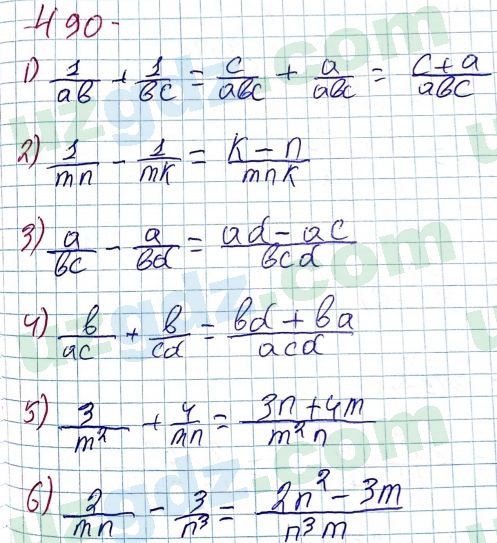 490.
1) 1/ab + 1/bc = c/abc + a/abc = c+a/abc
2) 1/mn - 1/mk = k-n/mnk
3) a/bc - a/bd = ad-ac/bcd
4) b/ac + b/cd = bd+ba/acd
5) 3/m² + 4/mn = 3n+4m/m²n
6) 2/mn - 3/n³ = 2n²-3m/n³m
uzgdz.com